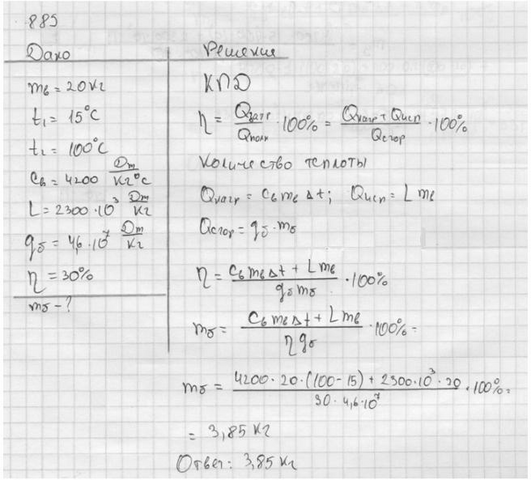 885
Дано
mв = 20 кг
t₁ = 15°C
t₂ = 100°C
cв = 4200 Дж/кг°C
L = 2300·10³ Дж/кг
qб = 4,6·10⁷ Дж/кг
η = 30%
mб - ?
Решение
КПД
η = Qзатр/Qполн · 100% = (Qнагр + Qисп)/Qсгор · 100%
Количество теплоты
Qнагр = cв mв Δt; Qисп = L mв
Qсгор = qб · mб
η = (cв mв Δt + L mв)/(qб mб) · 100%
mб = (cв mв Δt + L mв)/(η qб) · 100% =
mб = (4200 · 20 · (100-15) + 2300·10³ · 20)/(30 · 4,6·10⁷) · 100% =
= 3,85 кг
Ответ: 3,85 кг